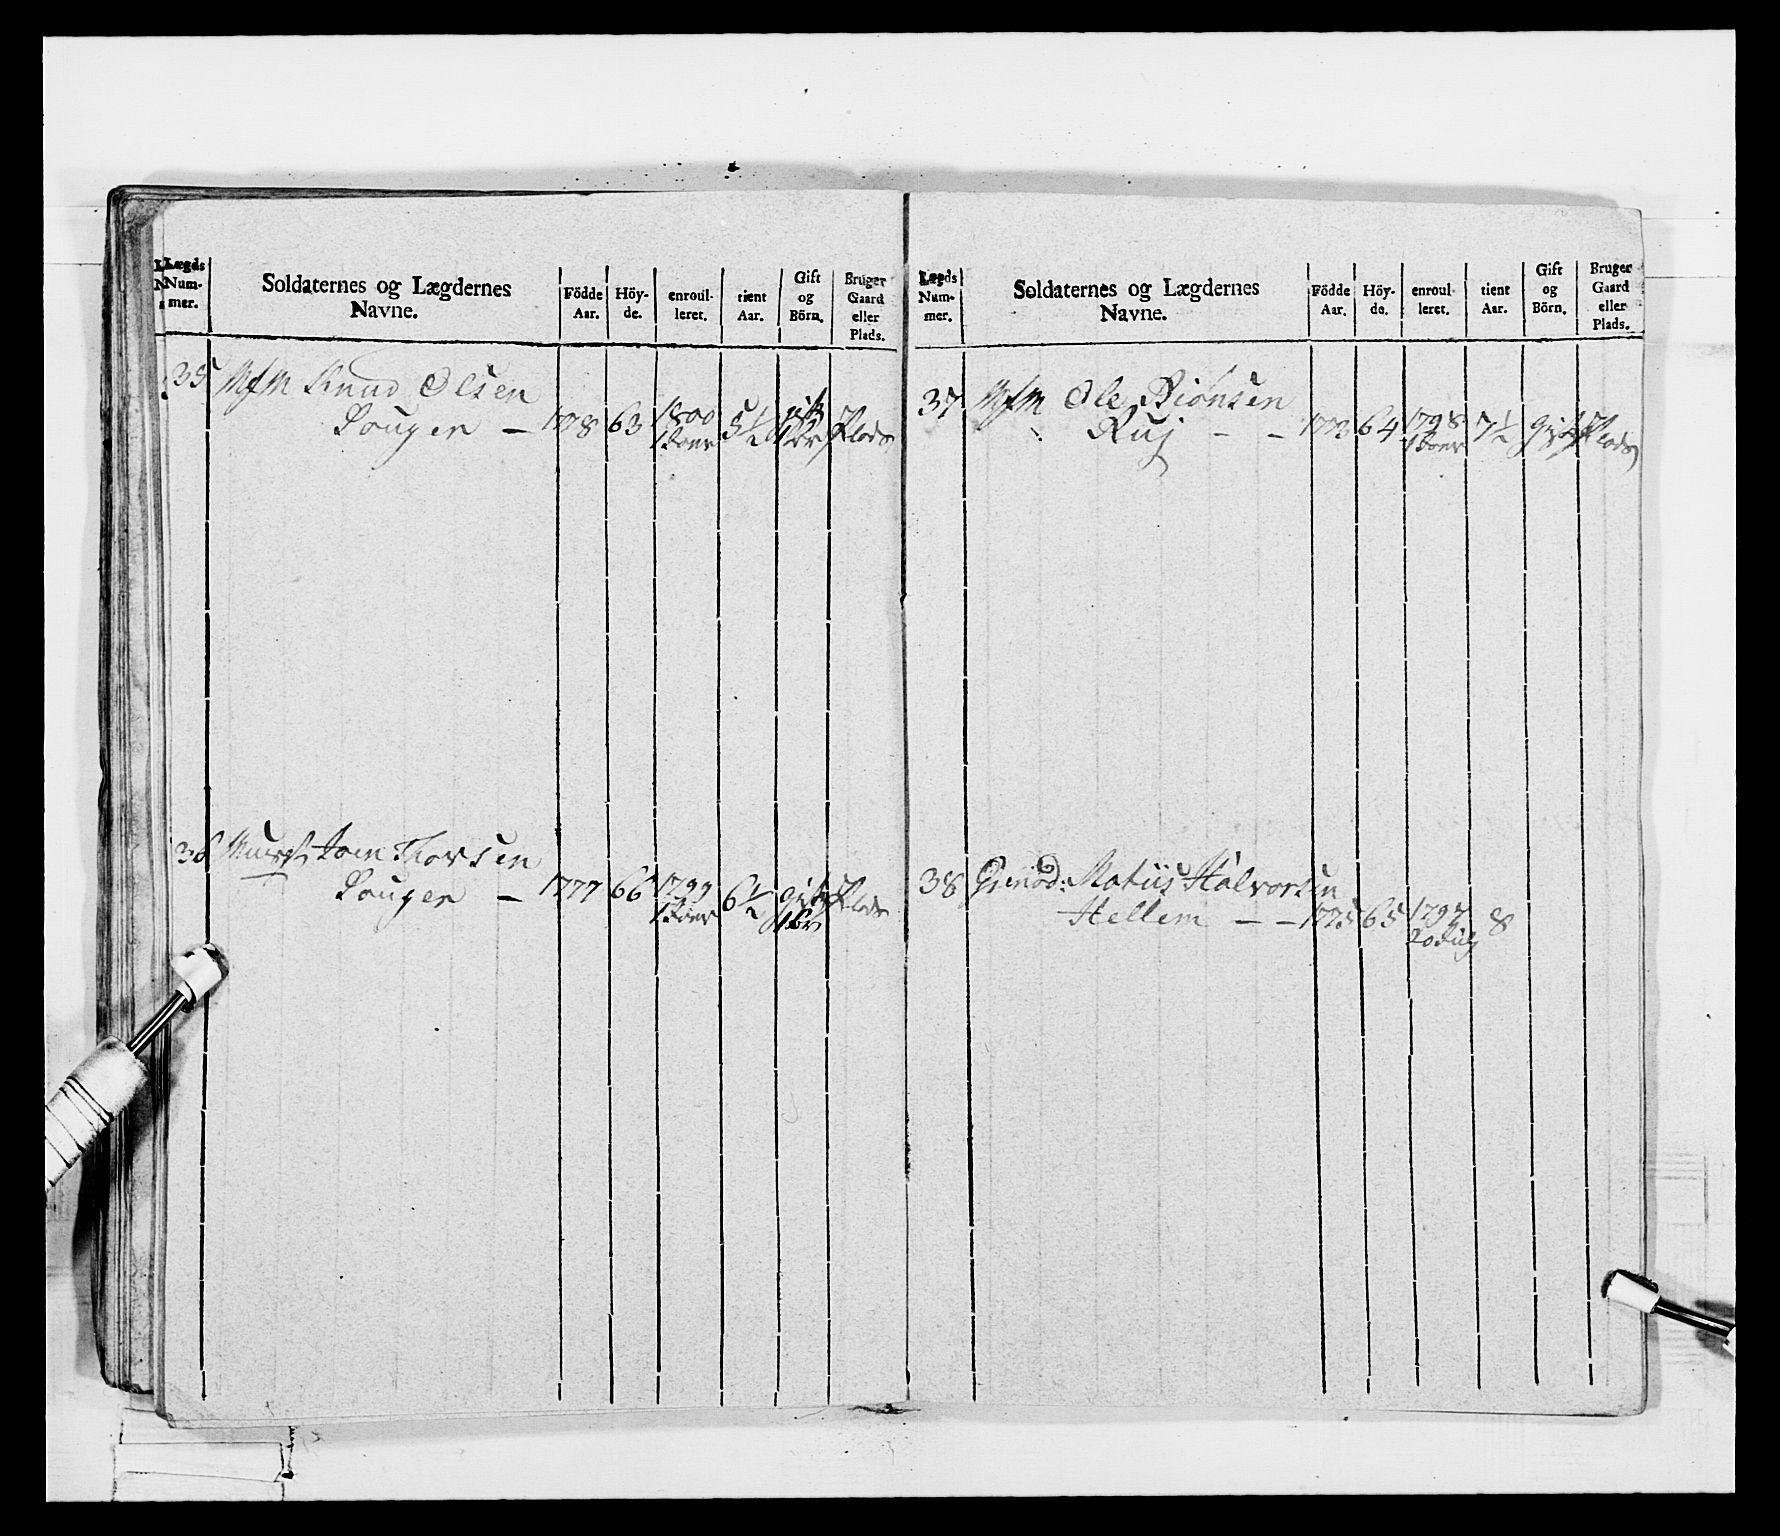 Lægds Num- mer.
Soldaternes og Lægdernes Navne.
Födde Aar.
Höy- de.
enroul- leret.
tient Aar.
Gift og Börn.
Bruger Gaard eller Plads.
35 Knud Olsen
1778 63 1800 5½ gift Plads
36 Thorsen
1777 66 1797 6½ gift Plads
1 br
Lægds Num- mer.
Soldaternes og Lægdernes Navne.
Födde Aar.
Höy- de.
enroul- leret.
tient Aar.
Gift og Börn.
Bruger Gaard eller Plads.
37 Ole Biönsen
Ruj – – 1773 64 1798 7½ Gift Plads
38 Grenad: Matiis Halvorsen
Hellem – – 1775 65 1797 8
20 July